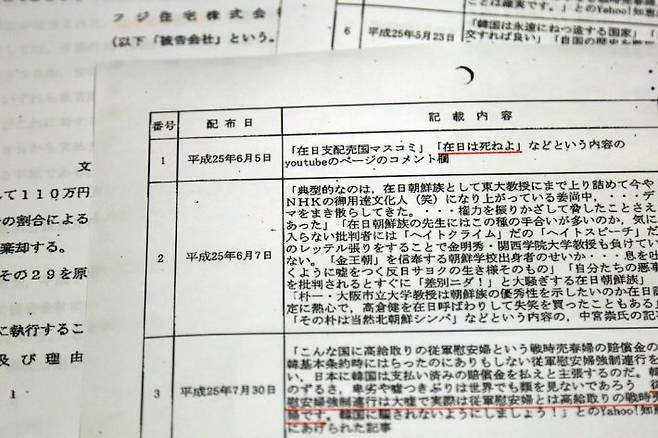 フジ住宅株式会
(以下「被告会社」という。
ことは確実です。」とのYahoo!知恵
6 平成25年5月23日
「韓国は永遠にねつ造する国家」
交すれば良い」「自国の歴史
文
して110万円
の割合による
棄却する。
その29を原
に執行するこ
及び理由
1
番号 配布日 記載内容
1 平成25年6月5日
「在日支配売国マスコミ」「在日は死ねよ」などという内容の
youtubeのページのコメント欄
2 平成25年6月7日
「典型的なのは，在日朝鮮族として東大教授にまで上り詰めて今や
NHKの御用達文化人（笑）になり上がっている姜尚中，・・・デ
マをまき散らしてきた。・・・権力を振りかざして脅したことさえ
あった」「在日朝鮮族の先生にはこの種の手合いが多いのか，気に
入らない批判者には「ヘイトクライム」だの「ヘイトスピーチ」だ
のレッテル張りをすることで金明秀・関西学院大学教授も負けてい
ない。「金王朝」を信奉する朝鮮学校出身者のせいか・・・息を吐
くように嘘をつく反日サヨクの生き様そのもの」「自分たちの悪事
を批判されるとすぐに「差別ニダ！」と大騒ぎする在日朝鮮族」
「朴一・大阪市立大学教授は朝鮮族の優秀性を示したいのか在日認
定に熱心で，高倉健を在日呼ばわりして失笑を買ったこともある」
「その朴は当然北朝鮮シンパ」などという内容の，中宮崇氏の記
3 平成25年7月30日
「こんな国に高給取りの従軍慰安婦という戦時売春婦の賠償金の
韓基本条約時にはらったのにありもしない従軍慰安婦強制連行を
い，日本に韓国は支払い済みの賠償金を払えと主張するのだ。韓
のずるさ，卑劣や嘘つきぶりは世界でも類を見ないであろう 従
慰安婦強制連行は大嘘で実際は従軍慰安婦とは高給取りの戦時売
婦です。韓国に騙されないようにしましょう！」とのYahoo!知恵
にあげられた記事